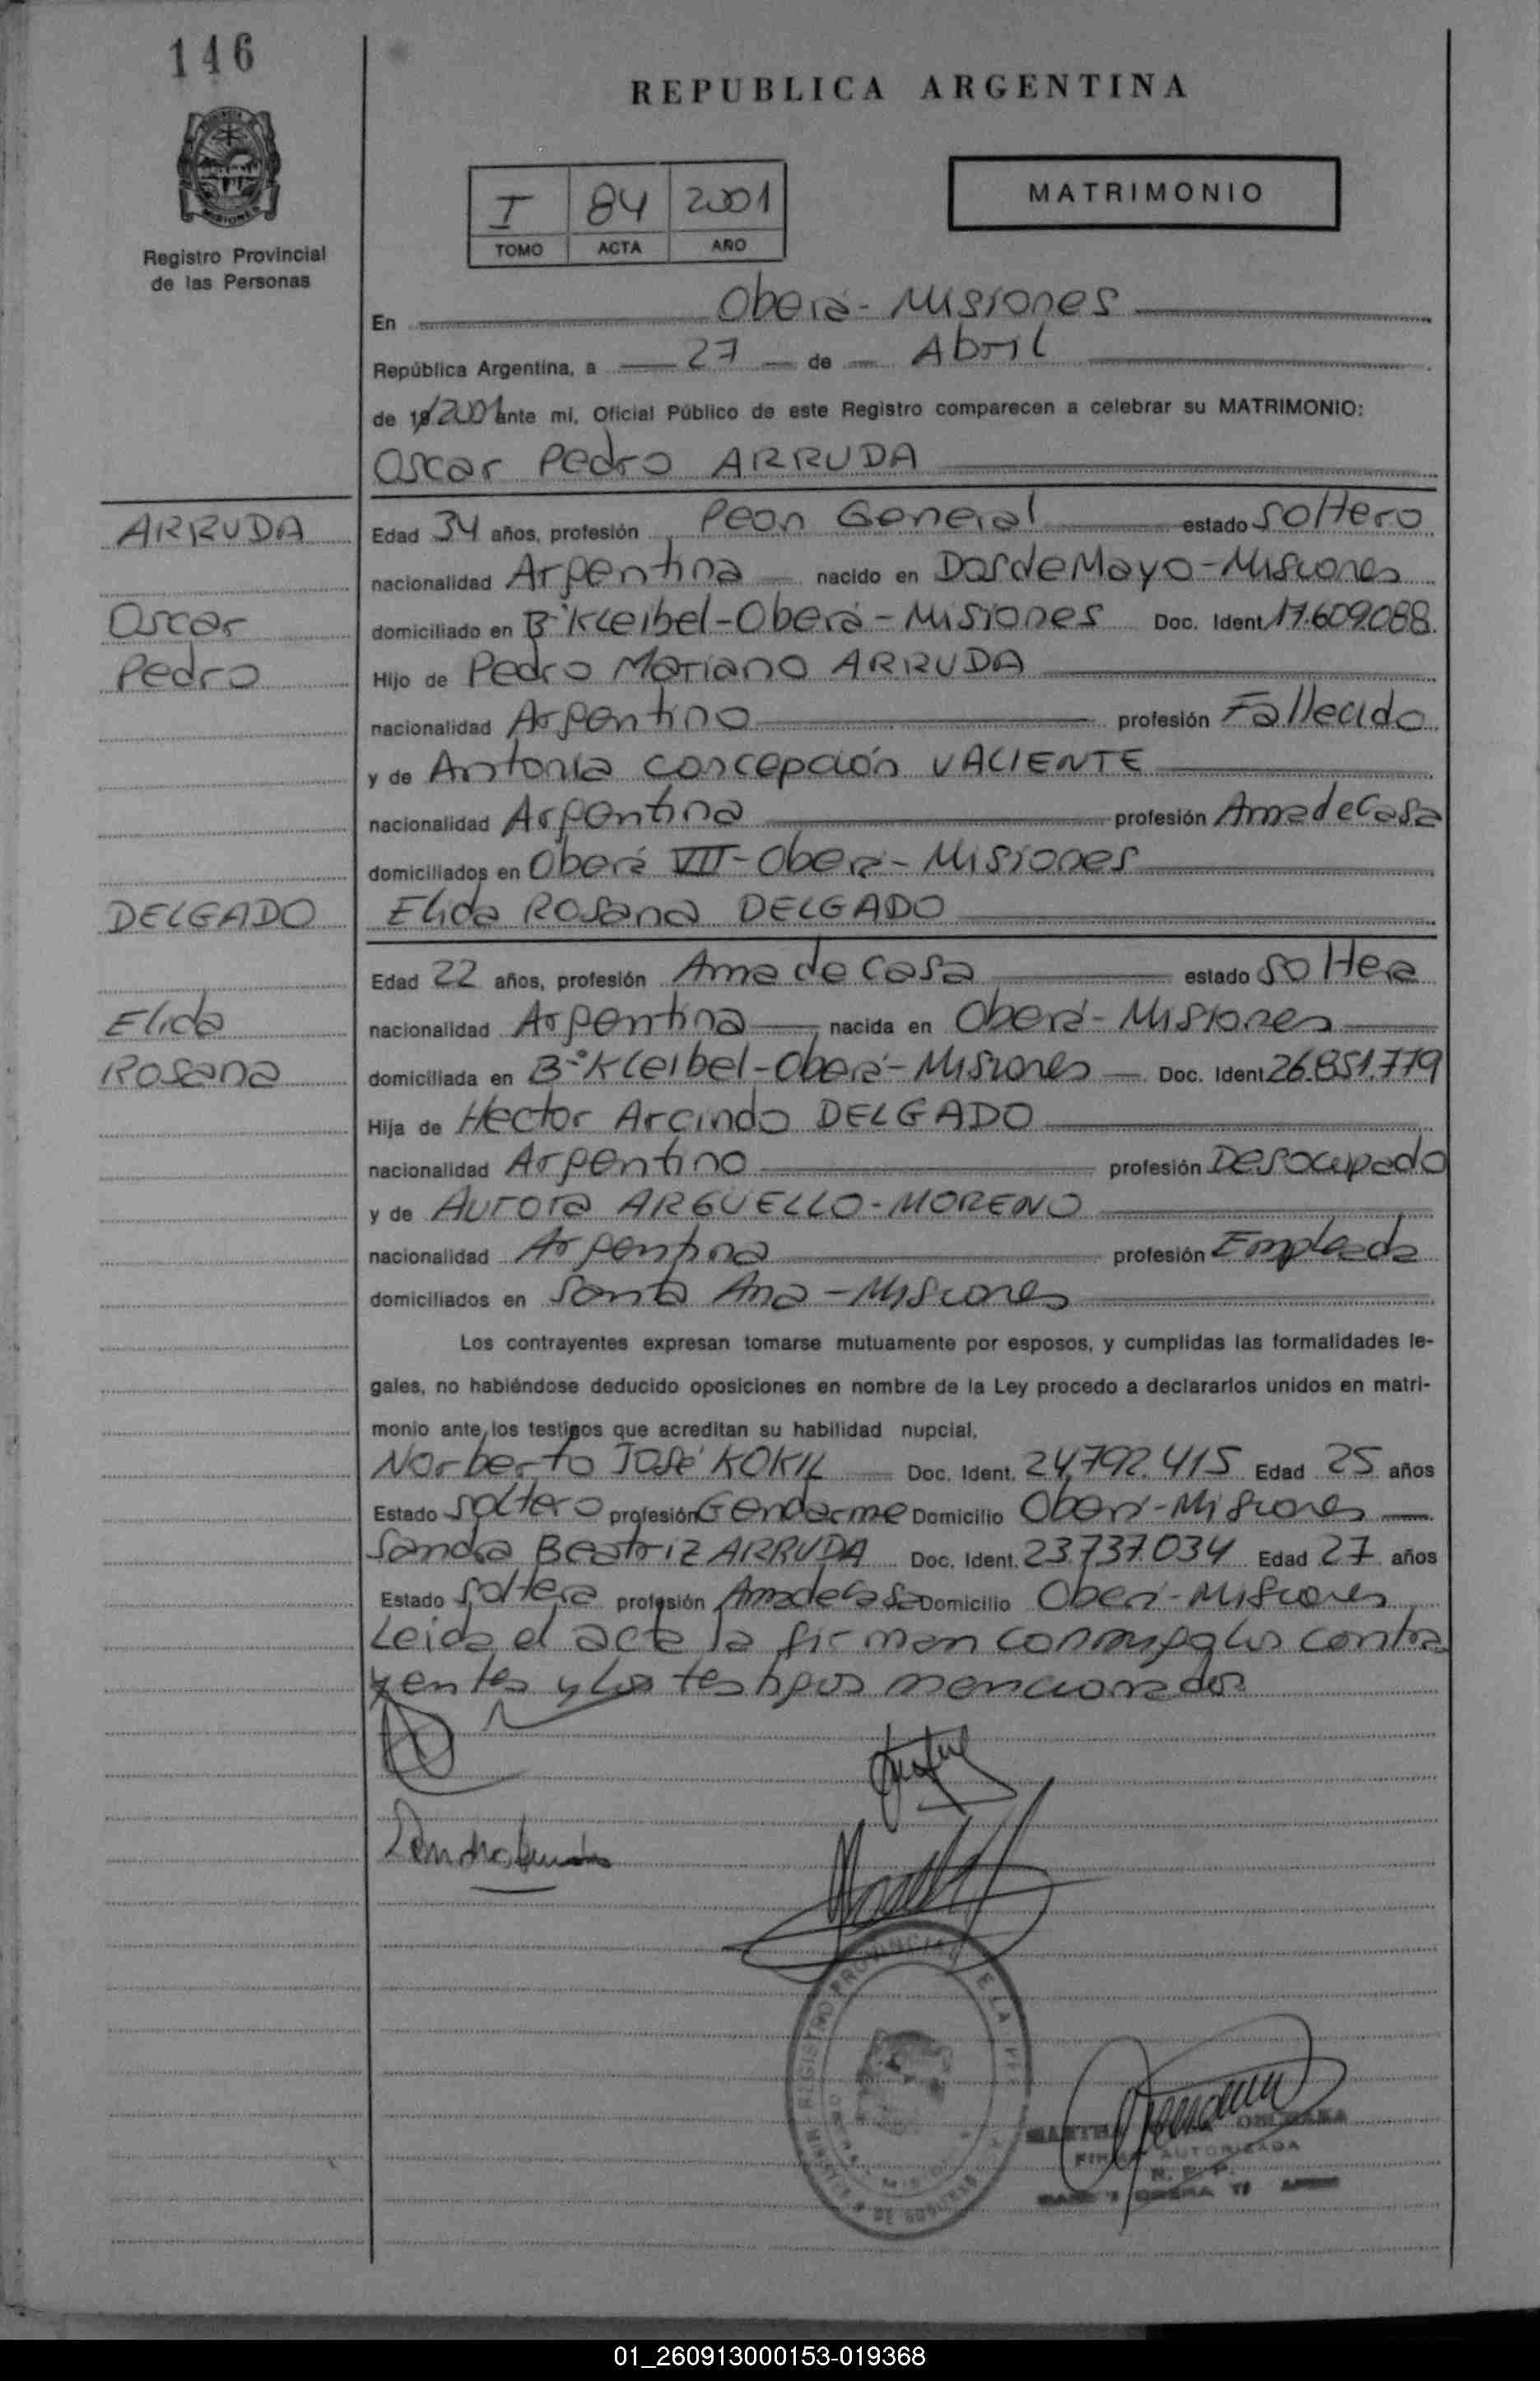 146
REPUBLICA ARGENTINA
I 84 2001
TOMO ACTA AÑO
MATRIMONIO
Registro Provincial
de las Personas
En Oberá - Misiones
República Argentina, a 27 de Abril
de 19/2001 ante mí, Oficial Público de este Registro comparecen a celebrar su MATRIMONIO:
Oscar Pedro ARRUDA
ARRUDA
Edad 34 años, profesión Peon General estado Soltero
nacionalidad Argentina nacido en Dos de Mayo - Misiones
Oscar
domiciliado en B° Kleibel - Oberá - Misiones Doc. Ident. 17.609.088
Pedro
Hijo de Pedro Mariano ARRUDA
nacionalidad Argentino profesión Fallecido
y de Antonia Concepción VALIENTE
nacionalidad Argentina profesión Ama de Casa
domiciliados en Oberá VII - Oberá - Misiones
DELGADO
Elida Rosana DELGADO
Edad 22 años, profesión Ama de Casa estado Soltera
Elida
nacionalidad Argentina nacida en Oberá - Misiones
Rosana
domiciliada en B° Kleibel - Oberá - Misiones Doc. Ident. 26.851.779
Hija de Hector Arcindo DELGADO
nacionalidad Argentino profesión Desocupado
y de Aurora ARGUELLO - MORENO
nacionalidad Argentina profesión Empleada
domiciliados en Santa Ana - Misiones
Los contrayentes expresan tomarse mutuamente por esposos, y cumplidas las formalidades le-
gales, no habiéndose deducido oposiciones en nombre de la Ley procedo a declararlos unidos en matri-
monio ante los testigos que acreditan su habilidad nupcial.
Norberto José KOKIL Doc. Ident. 24.792.415 Edad 25 años
Estado Soltero profesión Gendarme Domicilio Oberá - Misiones
Sandra Beatriz ARRUDA Doc. Ident. 23.737.034 Edad 27 años
Estado Soltera profesión Ama de Casa Domicilio Oberá - Misiones
Leida el acta la firman conmigo los contra
yentes y los testigos mencionados
FIRMA AUTORIZADA
R. P. P.
01_260913000153-019368